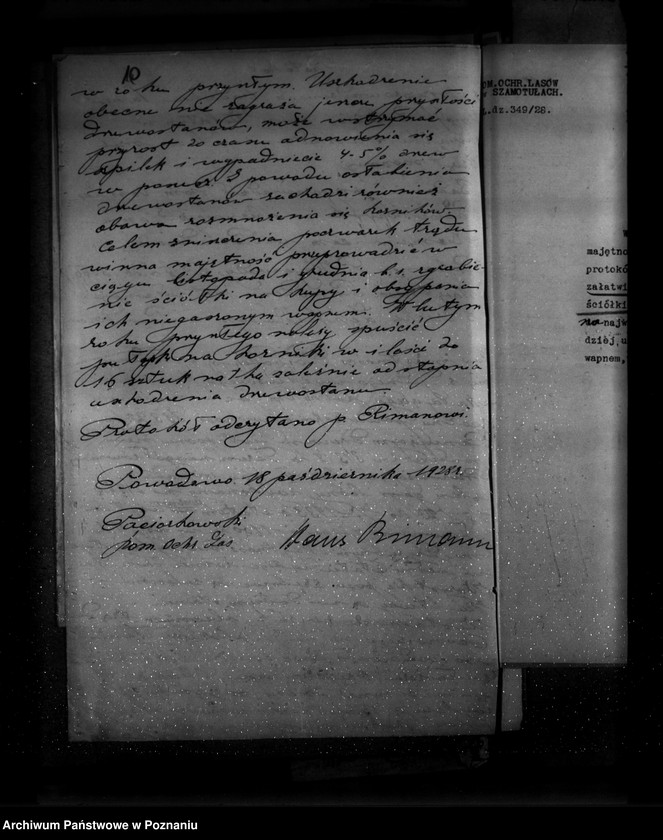 10
w roku przyszłym. Uszkodzenie
obecne nie zagraża jeszcze przyszłości
drzewostanów, może wstrzymać
przyrost do czasu odnowienia się
szpilek i wypadnięcie 4-5% drzew
w . Z powodu osłabienia
drzewostanów zachodzi również
obawa rozmnożenia się korników
Celem zniszczenia poczwarek
winna majętność przeprowadzić w
ciągu listopada i grudnia b.r. zgrabie-
nie ściółki na kupy i obsypania
ich niegaszonym wapnem. W lutym
roku przyszłego należy spuścić
pułapk na korniki w ilości do
16 sztuk na 1 ha zależnie od stopnia
uszkodzenia drzewostanu.
Protokół odczytano p. Rimanowi.
18 października 1928 r.
Paciorkowski
pom. Ochr. Las
Hans Rimann
M.OCHR.LASÓW
SZAMOTUŁACH.
.dz.349/28.
W
majętno
protokó
załatwi
ściółki
na najw
dziéj,u
wapnem,
Archiwum Państwowe w Poznaniu